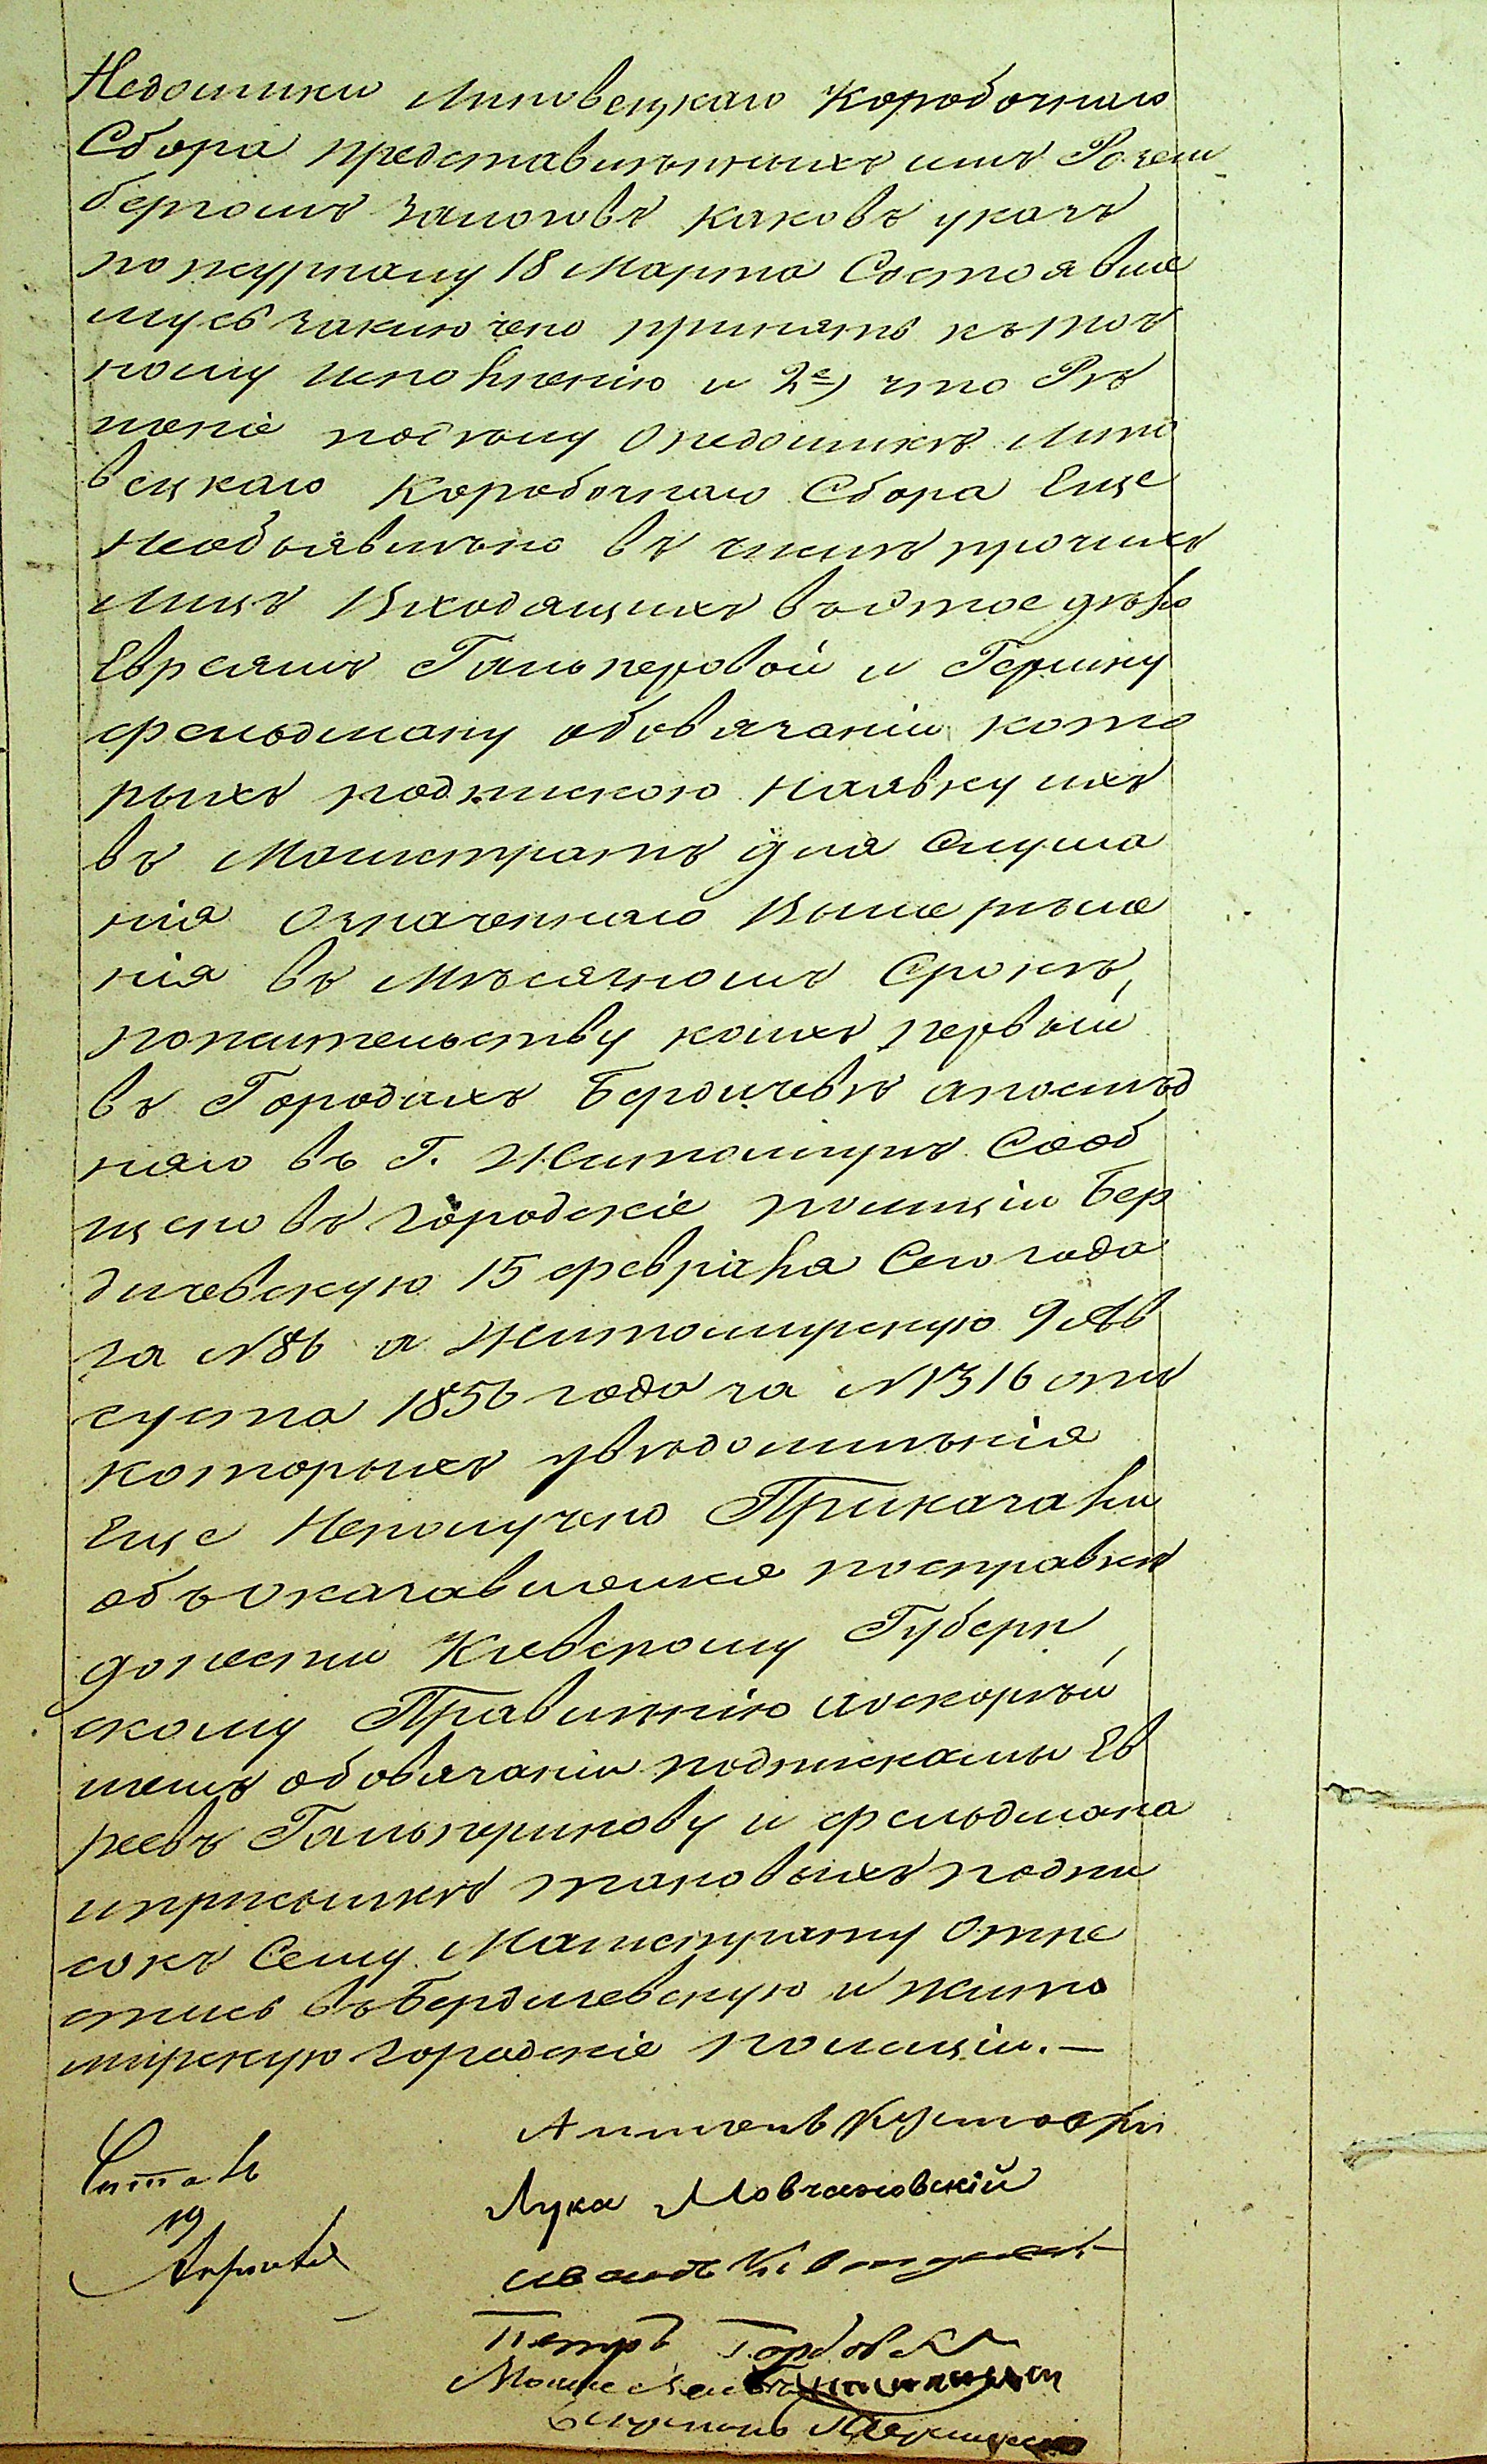 Недоимки Липовецкаго Коробочнаго
Сбора представильнныхъ имъ Розен-
бергомъ залоговъ каковъ указъ
по журналу 18 Марта Состоявше
муся заключено принять къ точ
ному исполненію и 2е) что Рѣ
шеніе подѣлу о недоимкѣ Липо
вецкаго Коробочнаго Сбора Еще
необъявильно въ числѣ прочихъ
лицъ Входящихъ въ этое дѣло
Евреямъ Гальперовой и Гершку
фельдману обовязаніи кото
рыхъ подпискою наявку ихъ
въ Магистратъ для Слуша
нія Означеннаго Выше рѣше
нія въ Мѣсячномъ Срокѣ,
пожительству коихъ первый
въ Городахъ Бердичевѣ апослѣд
няго въ Г. Житомирѣ Сооб
щено въ городскіе полиціи Бер
дичевскую 15 февраля Сего года
за №86 а Житомирскую 9 Ав
густа 1856 года за №1316 отъ
которыхъ увѣдомлѣнія
Еще Неполучено Приказали
объ оказавшемся посправкѣ
донести Кіевскому Губерн
скому Правлѣнію аоскорѣй
шемъ обовязаніи подписками Ев
реевъ Гальперинову и фельдмана
иприсылкѣ таковыхъ подпи
сокъ Сему Магистрату Отне
стись въ Бердичевскую и жито
мирскую городскіе полиціи.—
Читалъ
19
Апрѣля
Лука Мовчановскій
Иванъ
Петръ